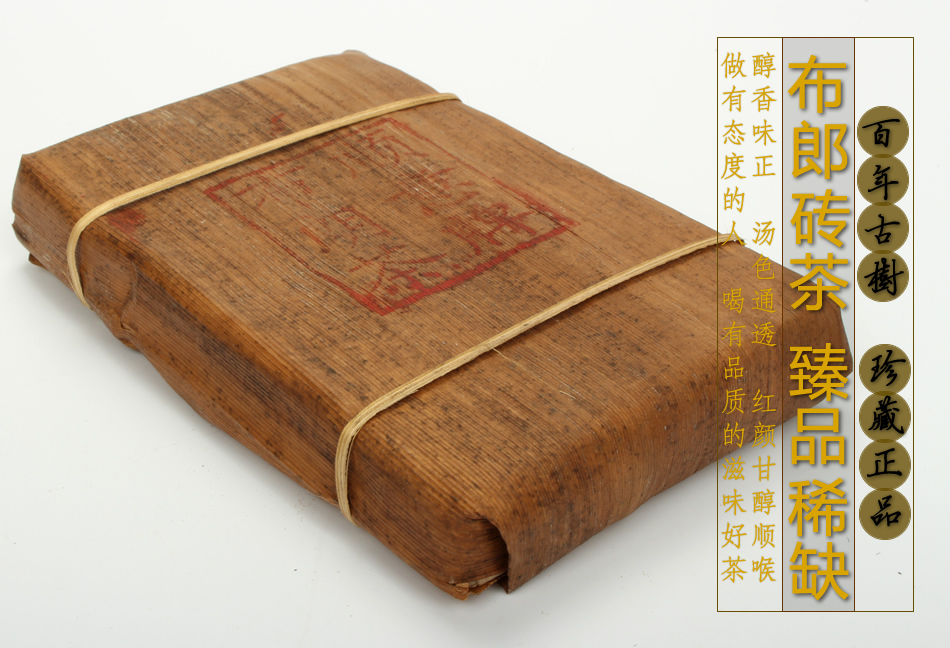 百年古樹 珍藏正品
布郎砖茶 臻品稀缺
醇香味正 汤色通透 红颜甘醇顺喉
做有态度的人 喝有品质的滋味好茶